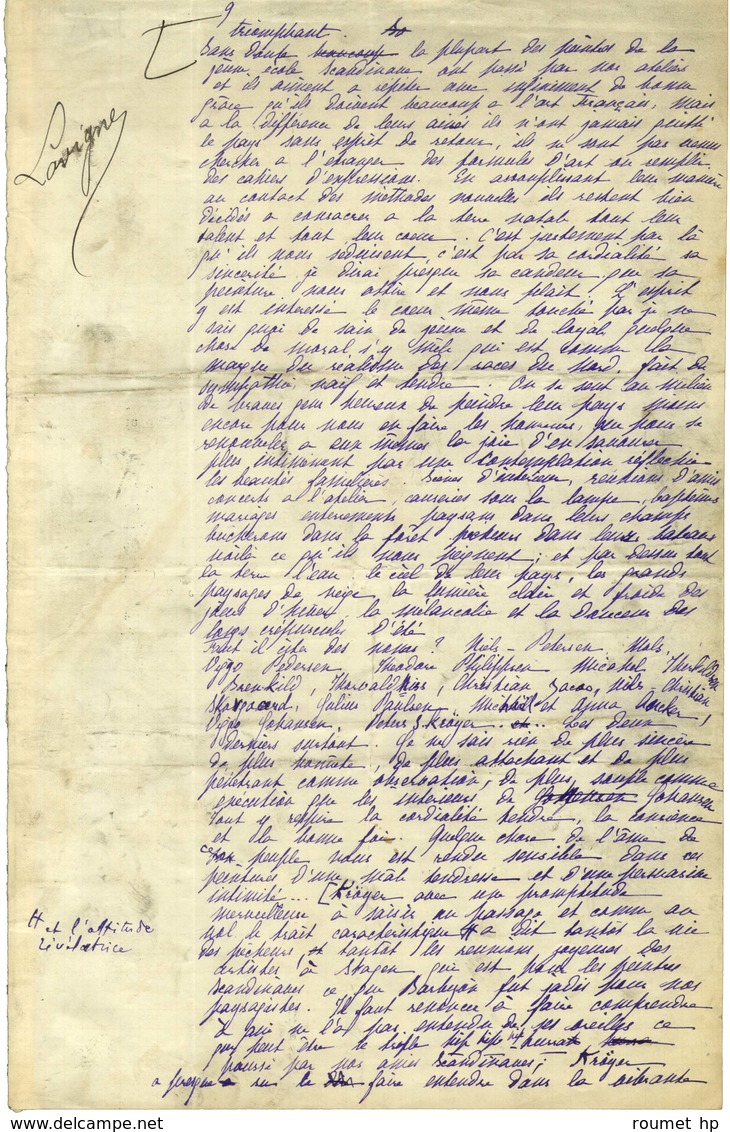 9
triomphant.
Sans doute beaucoup la plupart des peintres de la
jeune école scandinave ont passé par nos ateliers
et ils aiment a répéter avec infiniment de bonne
grâce qu'ils doivent beaucoup a l'art français, mais
a la différence de leurs ainés ils n'ont jamais quitté
le pays sans esprit de retour, ils ne sont pas venus
chercher a l'étranger des formules d'art ou remplir
des cahiers d'expressions. En assouplissant leur manière
au contact des méthodes nouvelles ils restent bien
décidés a consacrer a la terre natale tout leur
talent et tout leur coeur.. C'est justement par là
qu'ils nous séduisent, c'est par sa cordialité sa
sincerité je dirai presque sa candeur que sa
peinture nous attire et nous plait. L'esprit
y est interessé le coeur même touché par je ne
sais quoi de sain de jeune et de loyal quelque
chose de moral s'y mêle qui est comme la
marque du réalisme des races du Nord, fait de
sympathie naïf et tendre. On se sent au milieu
de braves gens heureux de peindre leur pays
encore pour nous en faire les honneurs, que pour se
renouveler a eux mêmes la joie d'en savourer
plus intimement par une contemplation réflechie
les beautés familières. Scènes d'intérieur, réunions d'amis
concerts a l'atelier, causeries sous la lampe, baptêmes
mariages enterrements paysans dans leurs champs
bucherons dans la forêt pecheurs dans leurs bateaux
voilà ce qu'ils nous peignent; et par dessus tout
la terre l'eau le ciel de leur pays, les grands
paysages de neige, la lumière claire et froide des
jours d'hiver la mélancolie et la douceur des
longs crépuscules d'été
Faut il citer des noms? Niels-Petersen Mols,
Vggo Pedersen, Theodore Philippsen Michael Therkildsen
Brenkild, Thorvald Niss, Christian Zacho, Niels Christian
Skovgaard, Julius Paulsen.. Michael et Anna Ancker,
Vggo Johansen, Peters S. Kröyer... Les deux
derniers surtout. Je ne sais rien de plus sincère
de plus honnête, de plus attachant et de plus
pénétrant comme observation, de plus souple comme
exécution que les intérieurs de Johansen
tout y respire la cordialité tendre, la conscience
et la bonne foi. Quelque chose de l'âme de
ce peuple vous est rendu sensible dans ces
peintures d'une mâle tendresse et d'une persuasive
intimité... [Kröyer avec une promptitude
merveilleuse à saisir au passage et comme au
vol le trait caractéristique # a dit tantôt la vie
des pêcheurs, tantôt les réunions joyeuses des
artistes à Skagen qui est pour les peintres
scandinaves ce que Barbizon fut jadis pour nos
paysagistes. Il faut renoncer à faire comprendre
à qui ne l'a pas entendu de ses oreilles ce
que peut être le triple hip hip hip hourrah,
poussé par nos amis scandinaves; Kröyer
a presque su le faire entendre dans la vibrante
Lavigne
# et l'attitude
révélatrice
© roumet hp